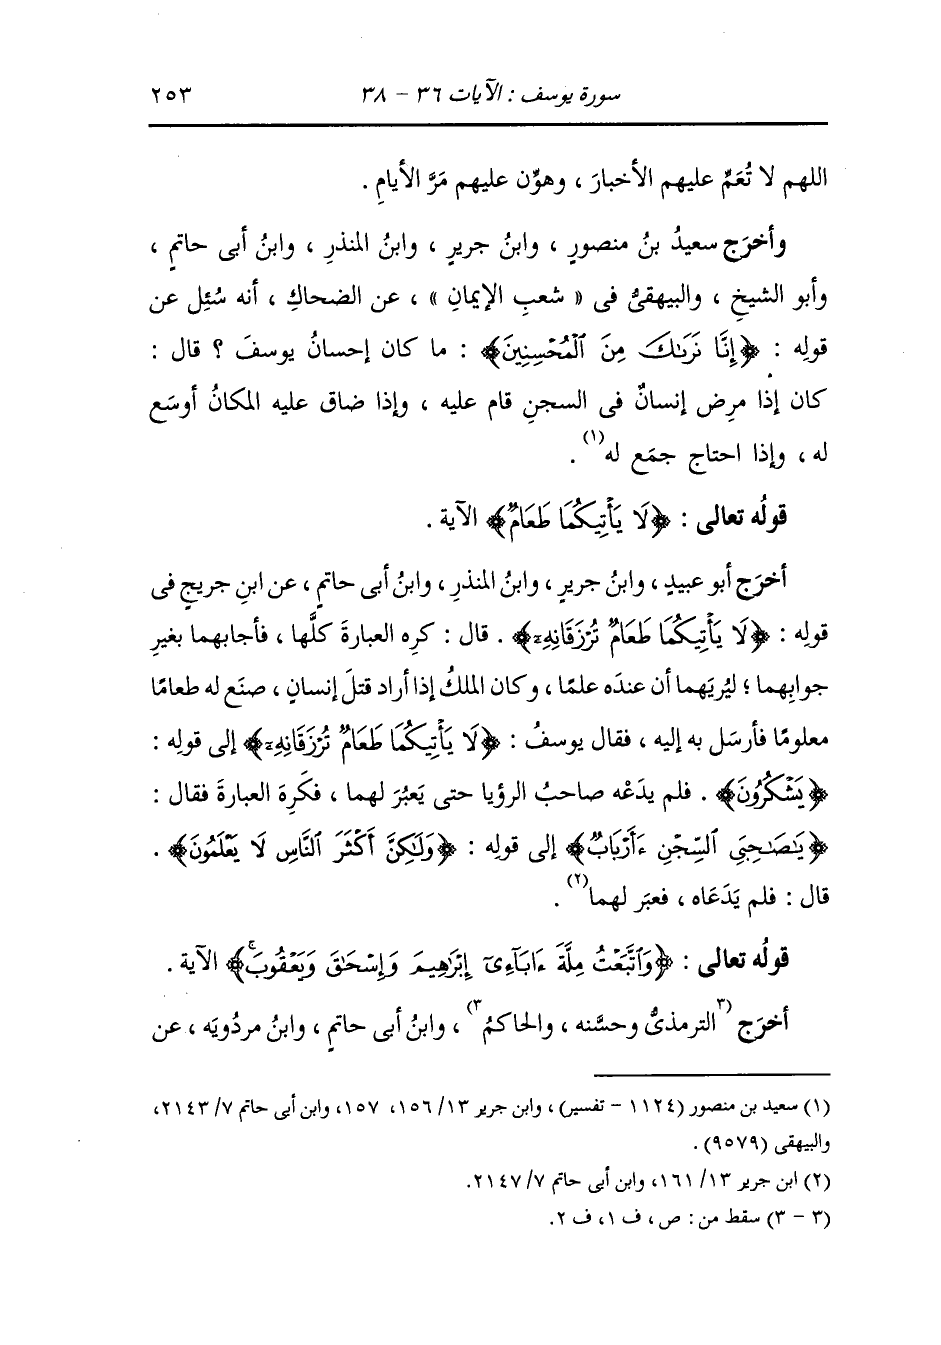 سورة يوسف : الآيات ٣٦ - ٣٨ ٢٥٣
اللهم لا تُعَمِّ عليهم الأخبارَ ، وهوِّن عليهم مَرَّ الأيامِ .
وأخرَج سعيدُ بنُ منصورٍ ، وابنُ جريرٍ ، وابنُ المنذرِ ، وابنُ أبى حاتمٍ ،
وأبو الشيخِ ، والبيهقىُّ فى « شعبِ الإيمانِ » ، عن الضحاكِ ، أنه سُئِل عن
قولِه : ﴿إِنَّا نَرَىٰكَ مِنَ ٱلْمُحْسِنِينَ﴾ : ما كان إحسانُ يوسفَ ؟ قال :
كان إذا مرِض إنسانٌ فى السجنِ قام عليه ، وإذا ضاق عليه المكانُ أوسَع
له ، وإذا احتاج جمَع له(١) .
قولُه تعالى : ﴿لَا يَأْتِيكُمَا طَعَامٌ﴾ الآية .
أخرَج أبو عبيدٍ ، وابنُ جريرٍ ، وابنُ المنذرِ ، وابنُ أبى حاتمٍ ، عن ابنِ جريجٍ فى
قولِه : ﴿لَا يَأْتِيكُمَا طَعَامٌ تُرْزَقَانِهِۦٓ﴾ . قال : كرِه العبارةَ كلَّها ، فأجابهما بغيرِ
جوابِهما ؛ ليُريَهما أن عندَه علمًا ، وكان الملكُ إذا أراد قتلَ إنسانٍ ، صنَع له طعامًا
معلومًا فأرسَل به إليه ، فقال يوسفُ : ﴿لَا يَأْتِيكُمَا طَعَامٌ تُرْزَقَانِهِۦٓ﴾ إلى قولِه :
﴿يَشْكُرُونَ﴾ . فلم يدَعْه صاحبُ الرؤيا حتى يَعبُرَ لهما ، فكَرِهَ العبارةَ فقال :
﴿يَٰصَٰحِبَىِ ٱلسِّجْنِ ءَأَرْبَابٌ﴾ إلى قولِه : ﴿وَلَٰكِنَّ أَكْثَرَ ٱلنَّاسِ لَا يَعْلَمُونَ﴾ .
قال : فلم يَدَعَاه ، فعبَر لهما(٢) .
قولُه تعالى : ﴿وَٱتَّبَعْتُ مِلَّةَ ءَابَآءِىٓ إِبْرَٰهِيمَ وَإِسْحَٰقَ وَيَعْقُوبَۚ﴾ الآية .
أخرَج (٣الترمذىُّ وحسَّنه ، والحاكمُ٣) ، وابنُ أبى حاتمٍ ، وابنُ مردُويَه ، عن
(١) سعيد بن منصور (١١٢٤ - تفسير) ، وابن جرير ١٣/ ١٥٦، ١٥٧، وابن أبى حاتم ٧/ ٢١٤٣،
والبيهقى (٩٥٧٩) .
(٢) ابن جرير ١٣/ ١٦١، وابن أبى حاتم ٧/ ٢١٤٧.
(٣ - ٣) سقط من : ص ، ف ١، ف ٢.